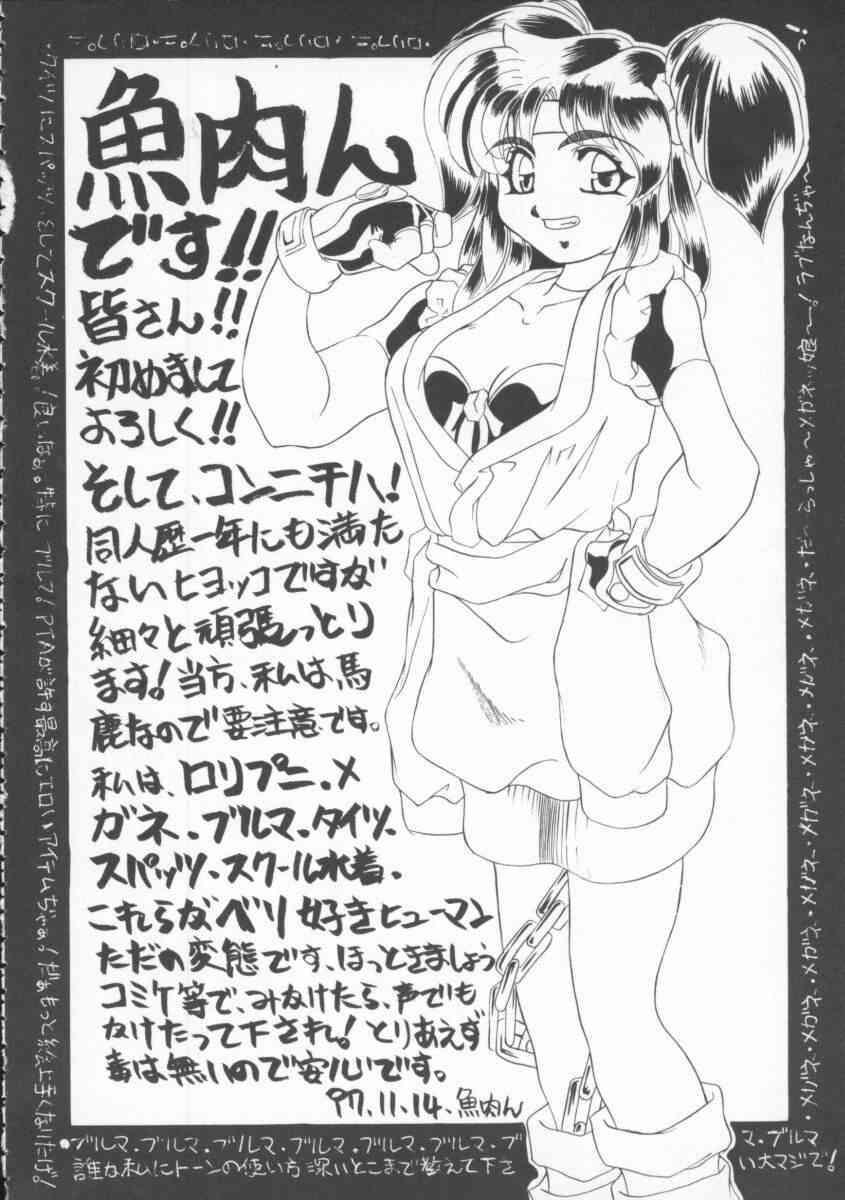 魚肉ん
です!!
皆さん!!
初めまして
よろしく!!
そして、コンニチハ!
同人歴一年にも満た
ないヒヨッコですが
細々と頑張っとり
ます!当方、私は、馬
鹿なので要注意です。
私は、ロリプニ、メ
ガネ、ブルマ、タイツ、
スパッツ、スクール水着、
これらがベリ好きヒューマン
ただの変態です、ほっときましょう
コミケ等で、みかけたら、声でも
かけたって下され!とりあえず
毒は無いので安心です。
97.11.14.魚肉ん
ブルマ・ブルマ・ブルマ・ブルマ・ブルマ・ブルマ・ブ
マ・ブルマ
誰か私にトーンの使い方深いとこまで教えて下さ
い大マジで!
タイツにスパッツ、そしてスクール水着!良いねぇ。特にブルマ!PTAが許す最高にエロいアイテムぢゃぁ!だぁもっと絵上手くなりたげ!
らっしゃ〜メガネッ娘〜!ラブなんぢゃ〜!
メガネ・メガネ・メガネ・メガネ・メガネ・メガネ・メガネ・メガネ・だ〜